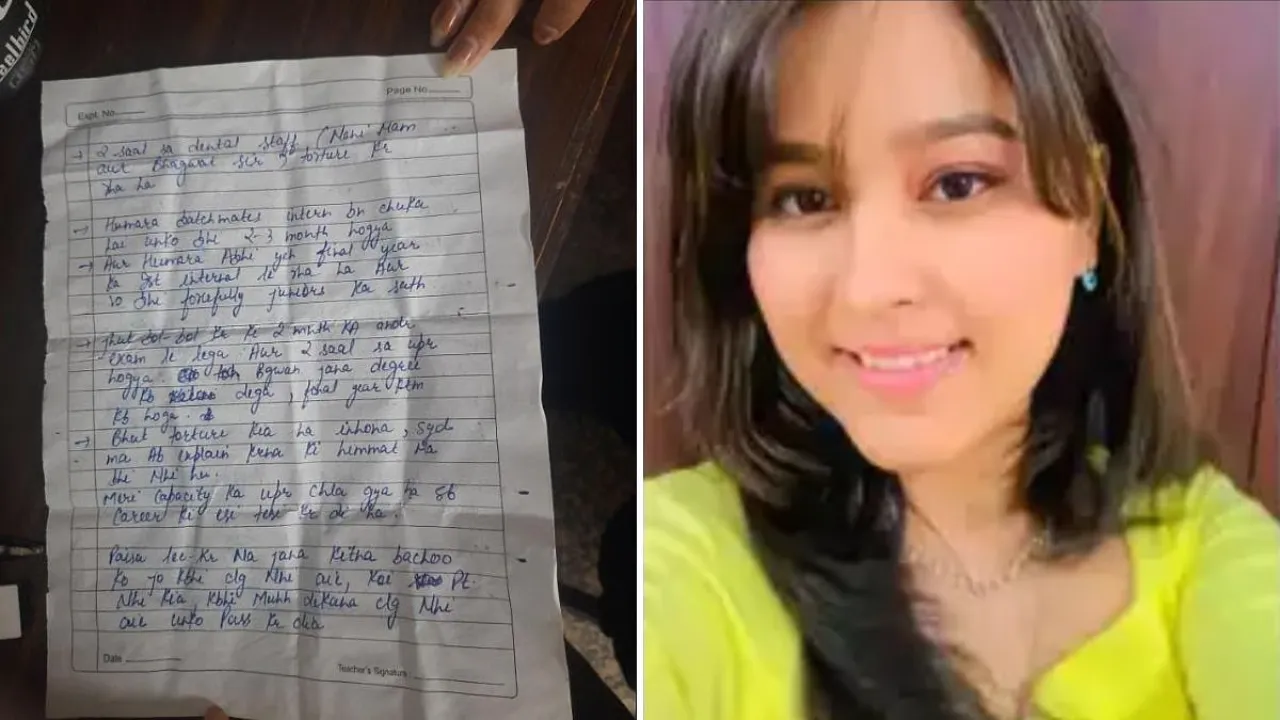 aelbird
Expt. No.
Page No.
→ 2 saal sa dental staff (Nehi Mam
aur Bhagwat sir 3 torture kr
rha ha
→ Humara batchmates intern bn chuka
hai unko bhi 2-3 month hogya
→ Aur Humara Abhi yeh final year
ka 1st internal le rha ha Aur
vo bhe forcefully juniors ka sath
→ jhut bol-bol kr ki 2 mnth KA andr
exam le lega. Aur 2 saal sa upr
hogya. Bgwan jana degree
Kb dega, final year
Kb hoga.
→ Bhut torture kia ha inhona, syd
ma Ab explain krna ki himmat ma
bhi Nhi hu.
Meri Capacity ka upr chla gya ha sb
Career ki esi tesi kr di ha.
Paisa lee-kr Na jana kitna bachoo
ko jo kbhi clg Nhi aie, koi Pt.
Nhi kia, kbhi Muhh dikhana clg Nhi
aie unko Pass kr dia
Date
Teacher's Signature